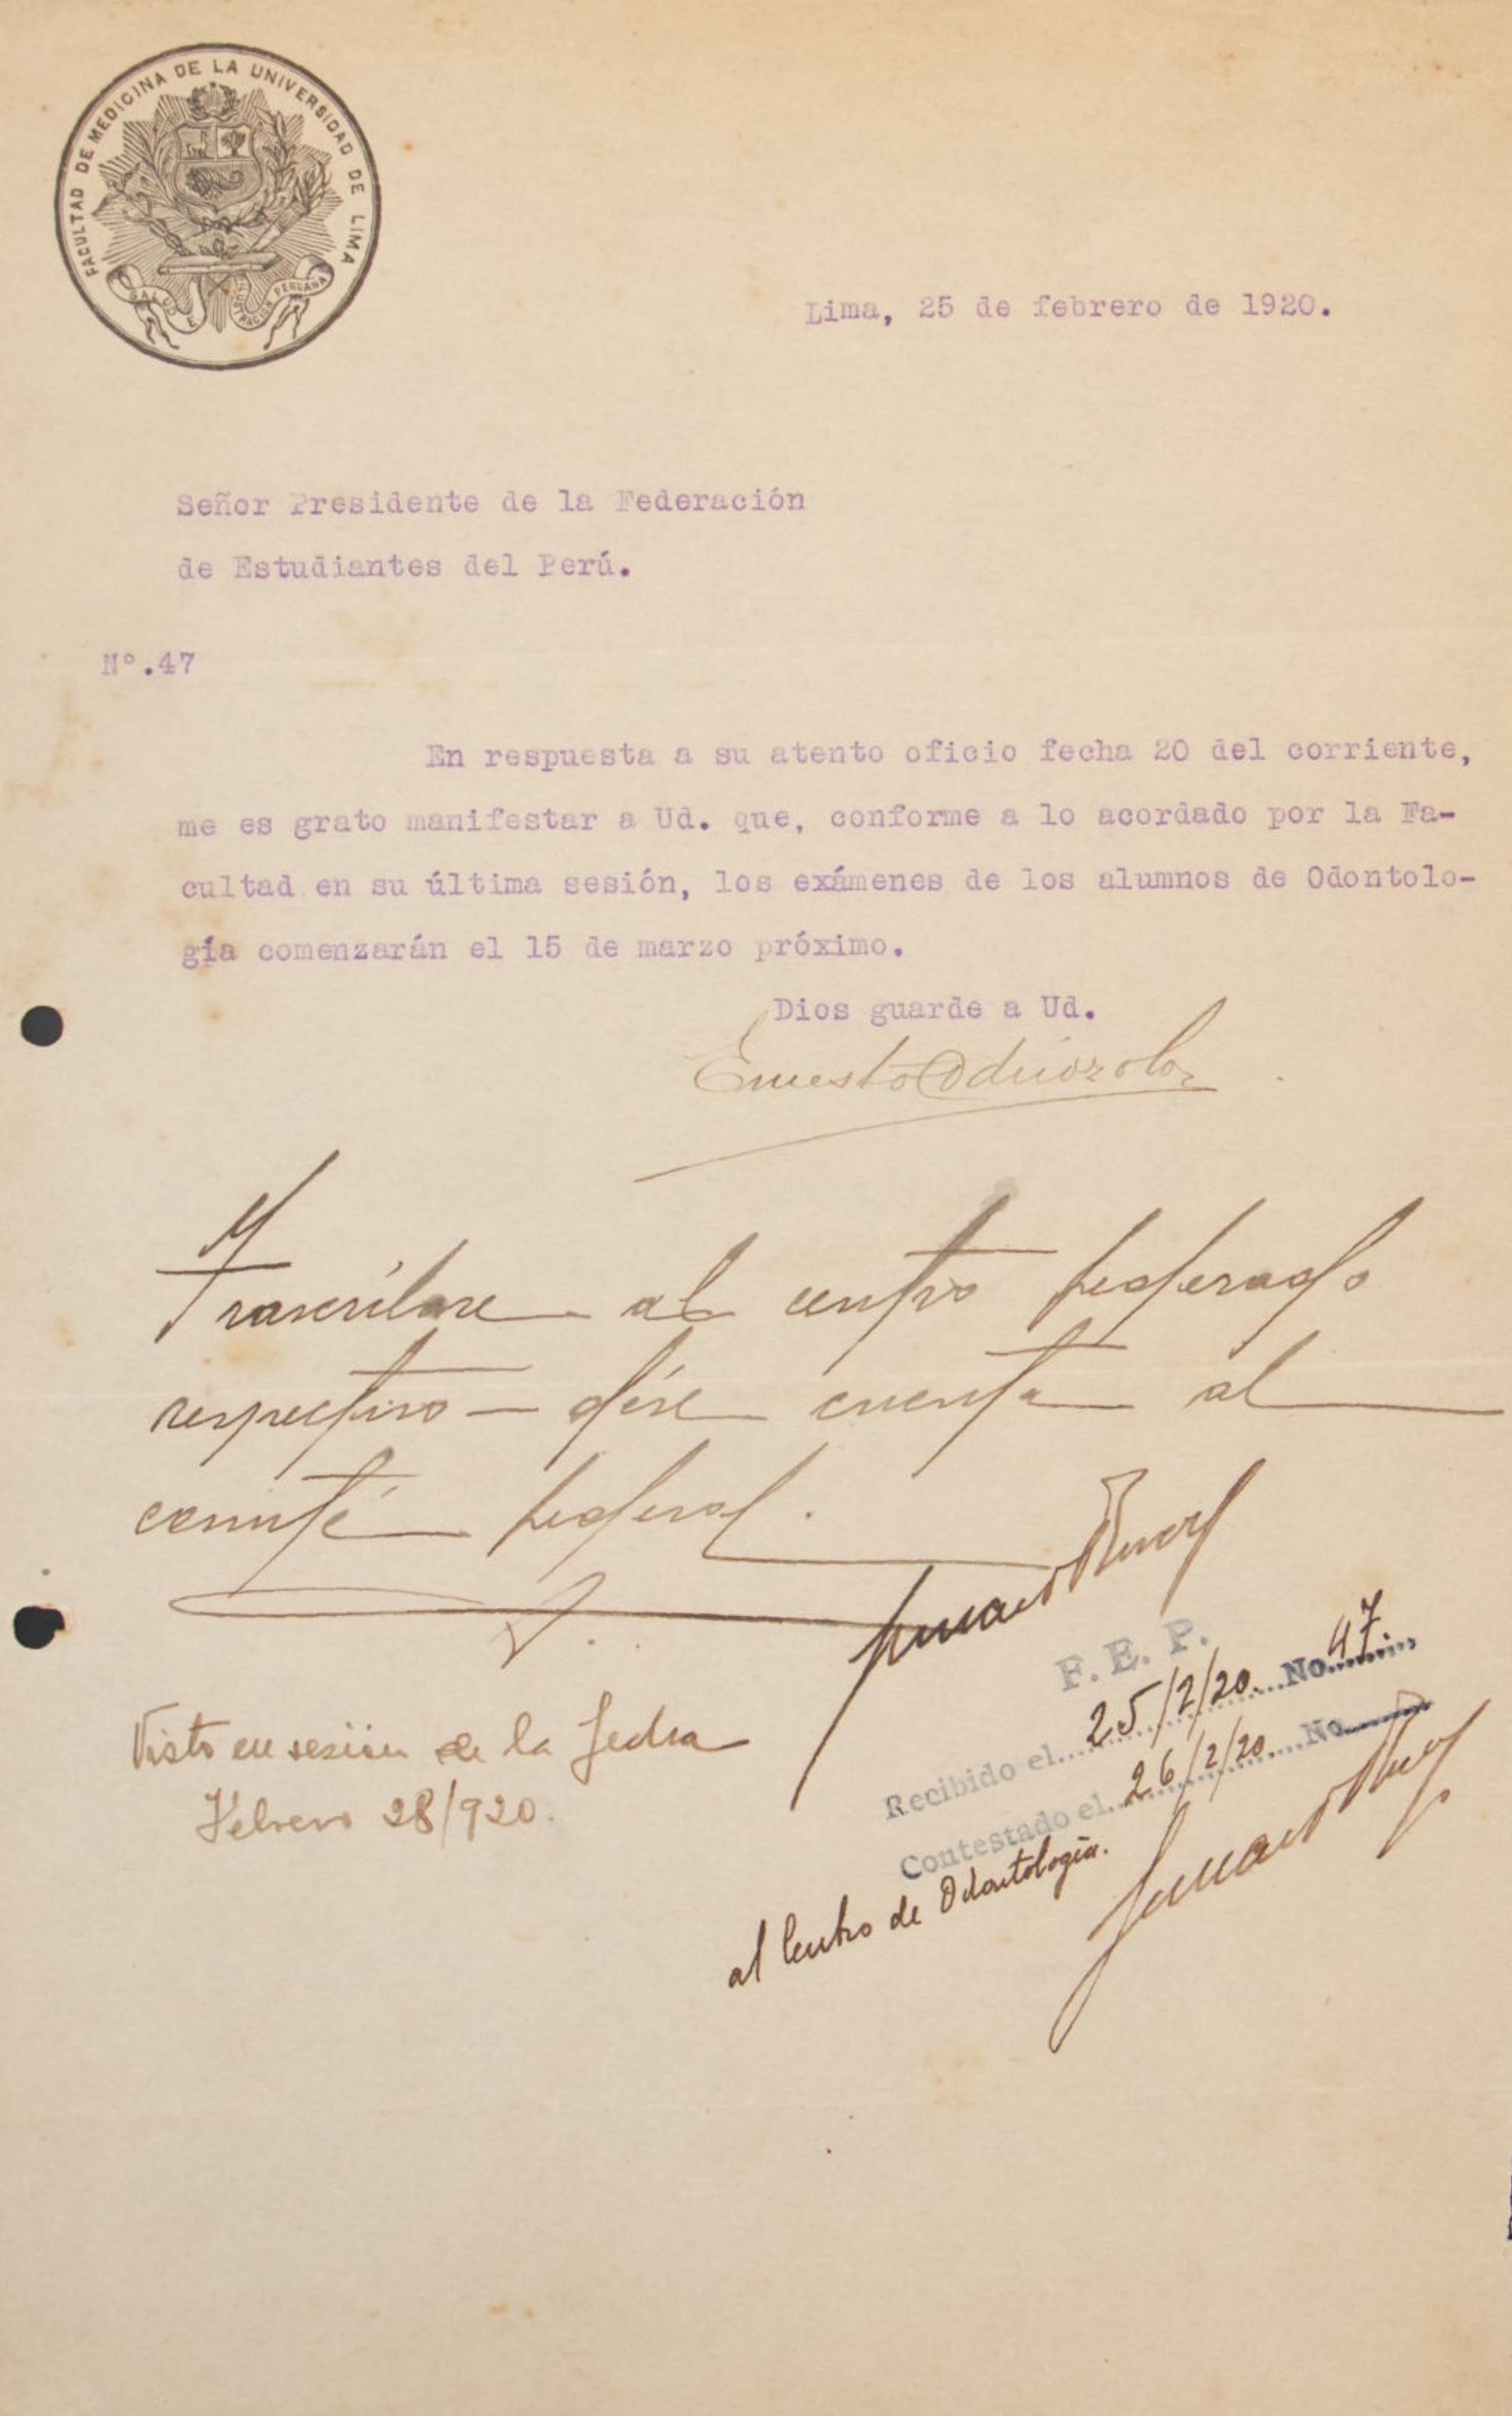 FACULTAD DE MEDICINA DE LA UNIVERSIDAD DE LIMA
SALUD E
PERUANA
Lima, 25 de febrero de 1920.
Señor Presidente de la Federación
de Estudiantes del Perú.
N°.47
En respuesta a su atento oficio fecha 20 del corriente,
me es grato manifestar a Ud. que, conforme a lo acordado por la Fa-
cultad en su última sesión, los exámenes de los alumnos de Odontolo-
gía comenzarán el 15 de marzo próximo.
Dios guarde a Ud.
Ernesto Odriozola
Transcríbase al centro federado
respectivo — dése cuenta al
comité federal.
F. E. P.
Recibido el 25/2/20. No. 47.
Contestado el 26/2/20 No.
al Centro de Odontología.
Visto en sesión de la fecha
Febrero 28/920.